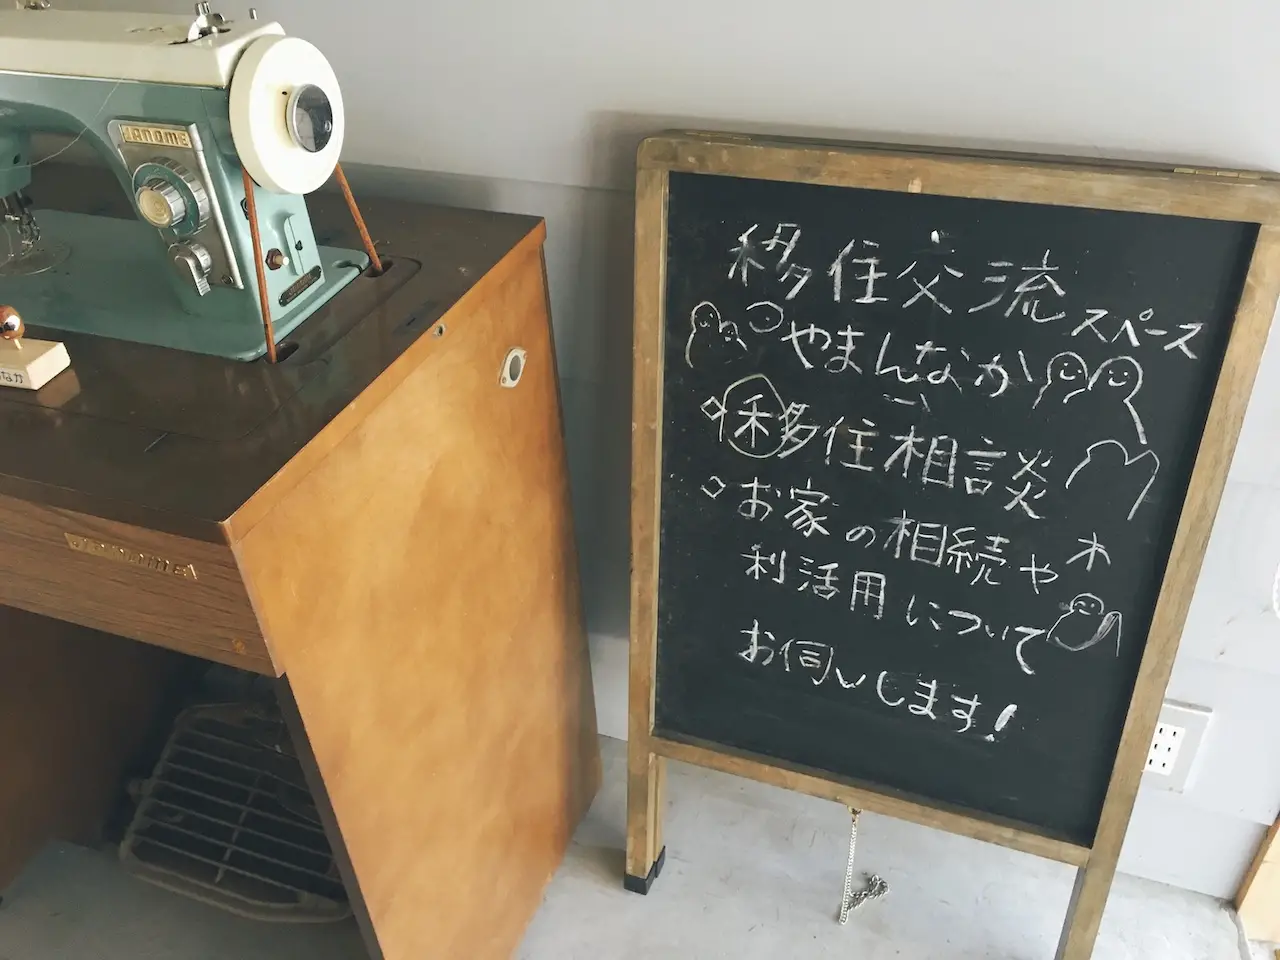 JANOME
Janome
なか
移住交流スペース
やまんなか
移住相談
お家の相続や
利活用について
お伺いします!